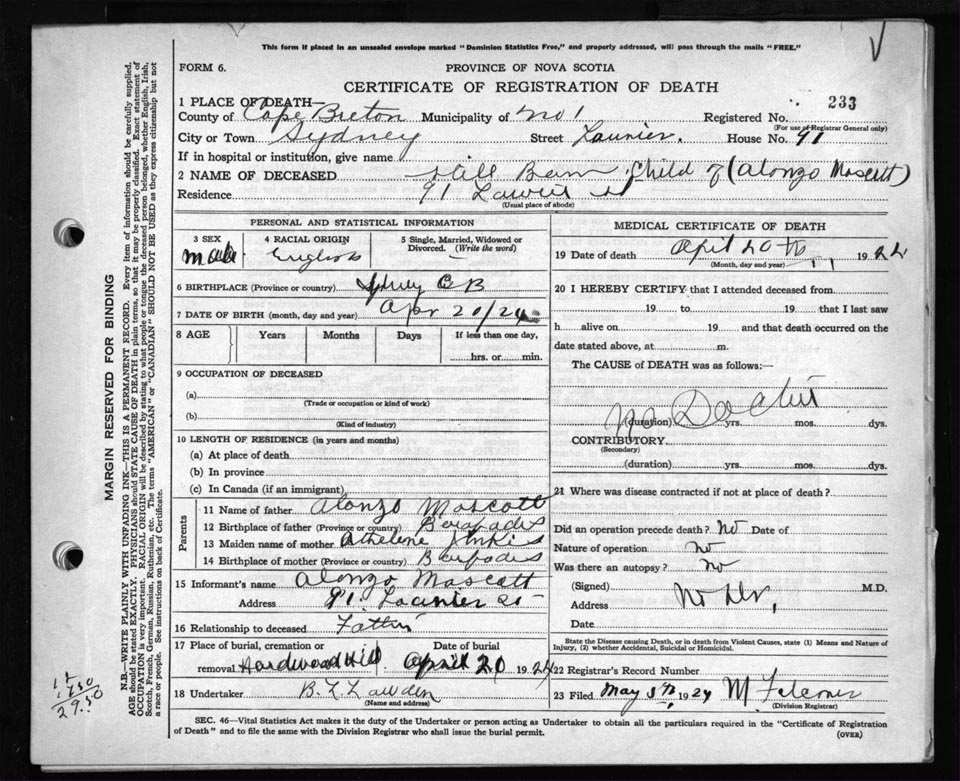 This form if placed in an unsealed envelope marked "Dominion Statistics Free," and properly addressed, will pass through the mails "FREE."
FORM 6.
PROVINCE OF NOVA SCOTIA
CERTIFICATE OF REGISTRATION OF DEATH
233
1 PLACE OF DEATH—
County of Cape Breton Municipality of No 1 Registered No.
(For use of Registrar General only)
City or Town Sydney Street Launier. House No. 91
If in hospital or institution, give name
2 NAME OF DECEASED Still Born Child of (Alonzo Mascott)
Residence 91
(Usual place of abode)
PERSONAL AND STATISTICAL INFORMATION
3 SEX
Male
4 RACIAL ORIGIN
English
5 Single, Married, Widowed or Divorced. (Write the word)
6 BIRTHPLACE (Province or country) Sydney C B
7 DATE OF BIRTH (month, day and year) Apr 20/24
8 AGE Years Months Days If less than one day,
hrs. or min.
9 OCCUPATION OF DECEASED
(a)
(Trade or occupation or kind of work)
(b)
(Kind of industry)
10 LENGTH OF RESIDENCE (in years and months)
(a) At place of death
(b) In province
(c) In Canada (if an immigrant)
Parents
11 Name of father Alonzo Mascott
12 Birthplace of father (Province or country)
13 Maiden name of mother
14 Birthplace of mother (Province or country)
15 Informant's name Alonzo Mascott
Address 91 Launier St
16 Relationship to deceased Father
17 Place of burial, cremation or Date of burial
removal Hardwood Hill April 20 1924
18 Undertaker
(Name and address)
MEDICAL CERTIFICATE OF DEATH
19 Date of death April 20th 1924
(Month, day and year)
20 I HEREBY CERTIFY that I attended deceased from
19 to 19 that I last saw
h alive on 19 and that death occurred on
date stated above, at m.
The CAUSE of DEATH was as follows:—
No Doctor
(duration) yrs. mos. dys.
CONTRIBUTORY
(Secondary)
(duration) yrs. mos. dys.
21 Where was disease contracted if not at place of death?
Did an operation precede death? no Date of
Nature of operation no
Was there an autopsy? no
(Signed) M.D.
Address No Dr,
Date
State the Disease causing Death, or in death from Violent Causes, state (1) Means and Nature of Injury, (2) whether Accidental, Suicidal or Homicidal.
22 Registrar's Record Number
23 Filed May 5th, 1924 M Falconer
(Division Registrar)
SEC. 46—Vital Statistics Act makes it the duty of the Undertaker or person acting as Undertaker to obtain all the particulars required in the "Certificate of Registration
of Death" and to file the same with the Division Registrar who shall issue the burial permit.
(OVER)
MARGIN RESERVED FOR BINDING
N.B.—WRITE PLAINLY WITH UNFADING INK—THIS IS A PERMANENT RECORD. Every item of information should be carefully supplied.
AGE should be stated EXACTLY. PHYSICIANS should STATE CAUSE OF DEATH in plain terms, so that it may be properly classified. Exact statement of
OCCUPATION is very important. RACIAL ORIGIN will be described by stating to what people or tongue the deceased person belonged, whether English, Irish,
Scotch, French, German, Russian, Ruthenian, etc. The terms "AMERICAN" or "CANADIAN" SHOULD NOT BE USED as they express citizenship but not
a race or people. See instructions on back of Certificate.